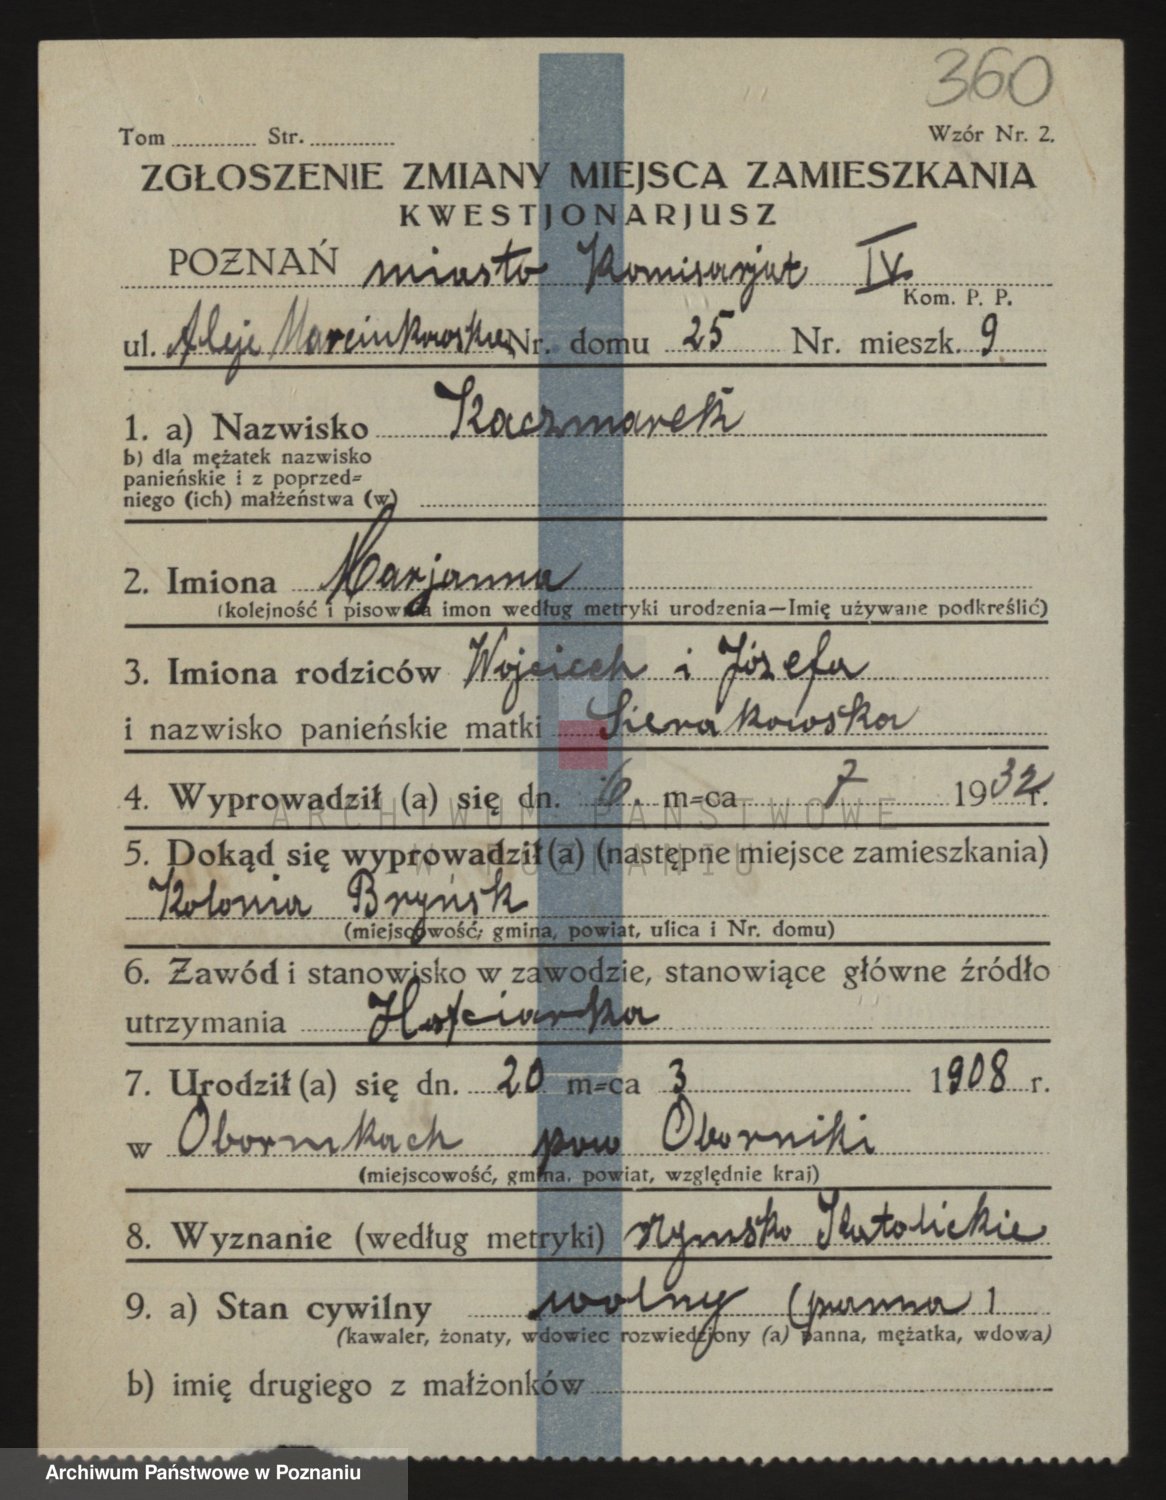 360
Tom ............ Str. ............
Wzór Nr. 2.
ZGŁOSZENIE ZMIANY MIEJSCA ZAMIESZKANIA
KWESTJONARJUSZ
POZNAŃ miasto Komisarjat IV.
Kom. P. P.
ul. Aleje Marcinkowskie Nr. domu 25 Nr. mieszk. 9
1. a) Nazwisko Kaczmarek
b) dla mężatek nazwisko
panieńskie i z poprzed=
niego (ich) małżeństwa (w)
2. Imiona Marjanna
(kolejność i pisownia imon według metryki urodzenia—Imię używane podkreślić)
3. Imiona rodziców Wojciech i Józefa
i nazwisko panieńskie matki Sierakowska
4. Wyprowadził (a) się dn. 6. m=ca 7 1932 r.
ARCHIWUM PAŃSTWOWE
5. Dokąd się wyprowadził (a) (następne miejsce zamieszkania)
W POZNANIU
Kolonia Bryńsk
(miejscowość, gmina, powiat, ulica i Nr. domu)
6. Zawód i stanowisko w zawodzie, stanowiące główne źródło
utrzymania
7. Urodził (a) się dn. 20 m=ca 3 1908 r.
w Obornikach pow Oborniki
(miejscowość, gmina, powiat, względnie kraj)
8. Wyznanie (według metryki) rzymsko Katolickie
9. a) Stan cywilny wolny (panna)
(kawaler, żonaty, wdowiec rozwiedziony (a) panna, mężatka, wdowa)
b) imię drugiego z małżonków
Archiwum Państwowe w Poznaniu